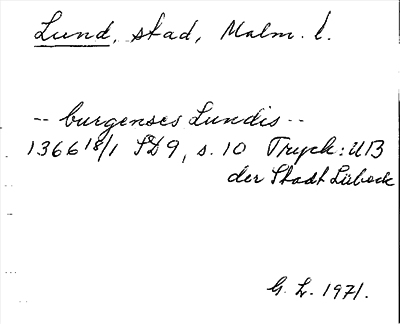 Lund, stad, Malm. l.
-- burgenses Lundis --
1366 18/1 SD 9, s. 10 Tryck: UB
der Stadt Lübeck
G. L. 1971.